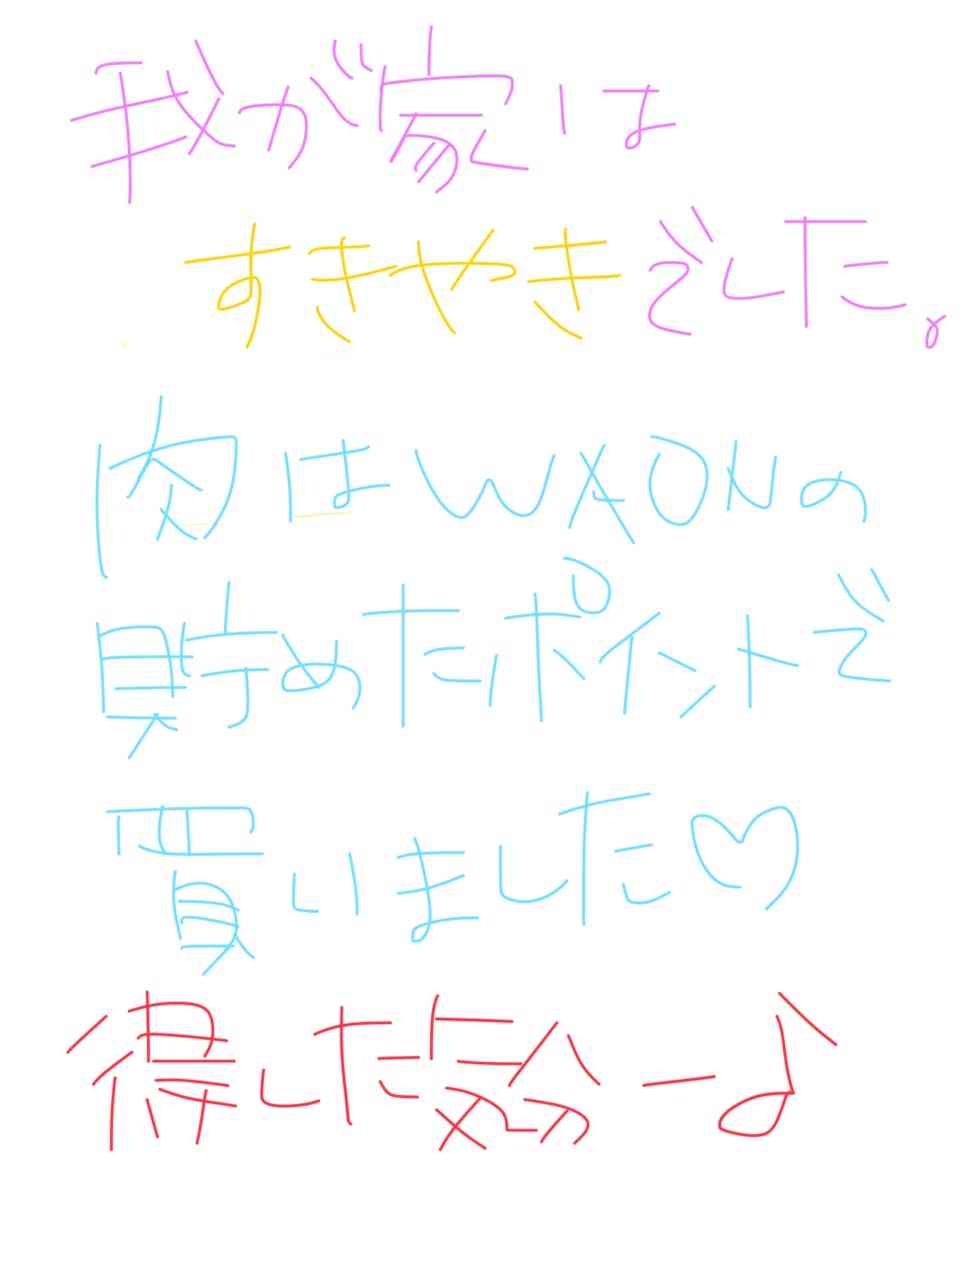 我が家は
すきやきでした。
肉はWAONの
貯めたポイントで
買いました♡
得した気分ー♪